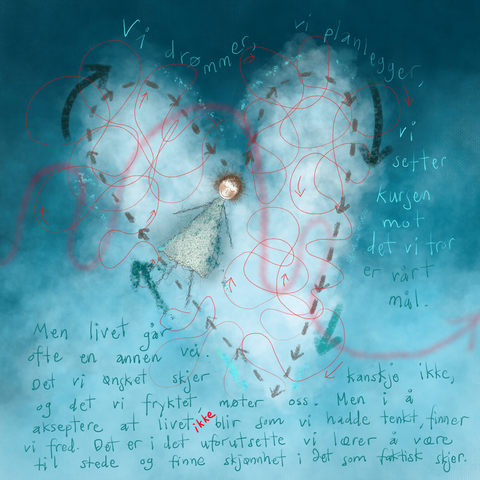 Vi drømmer,
vi planlegger,
vi
setter
kursen
mot
det vi tror
er vårt
mål.
Men livet går
ofte en annen vei.
Det vi ønsket skjer kanskje ikke,
og det vi fryktet, møter oss. Men i å
akseptere at livet ikke blir som vi hadde tenkt, finner
vi fred. Det er i det uforutsette vi lærer å være
til stede og finne skjønnhet i det som faktisk skjer.